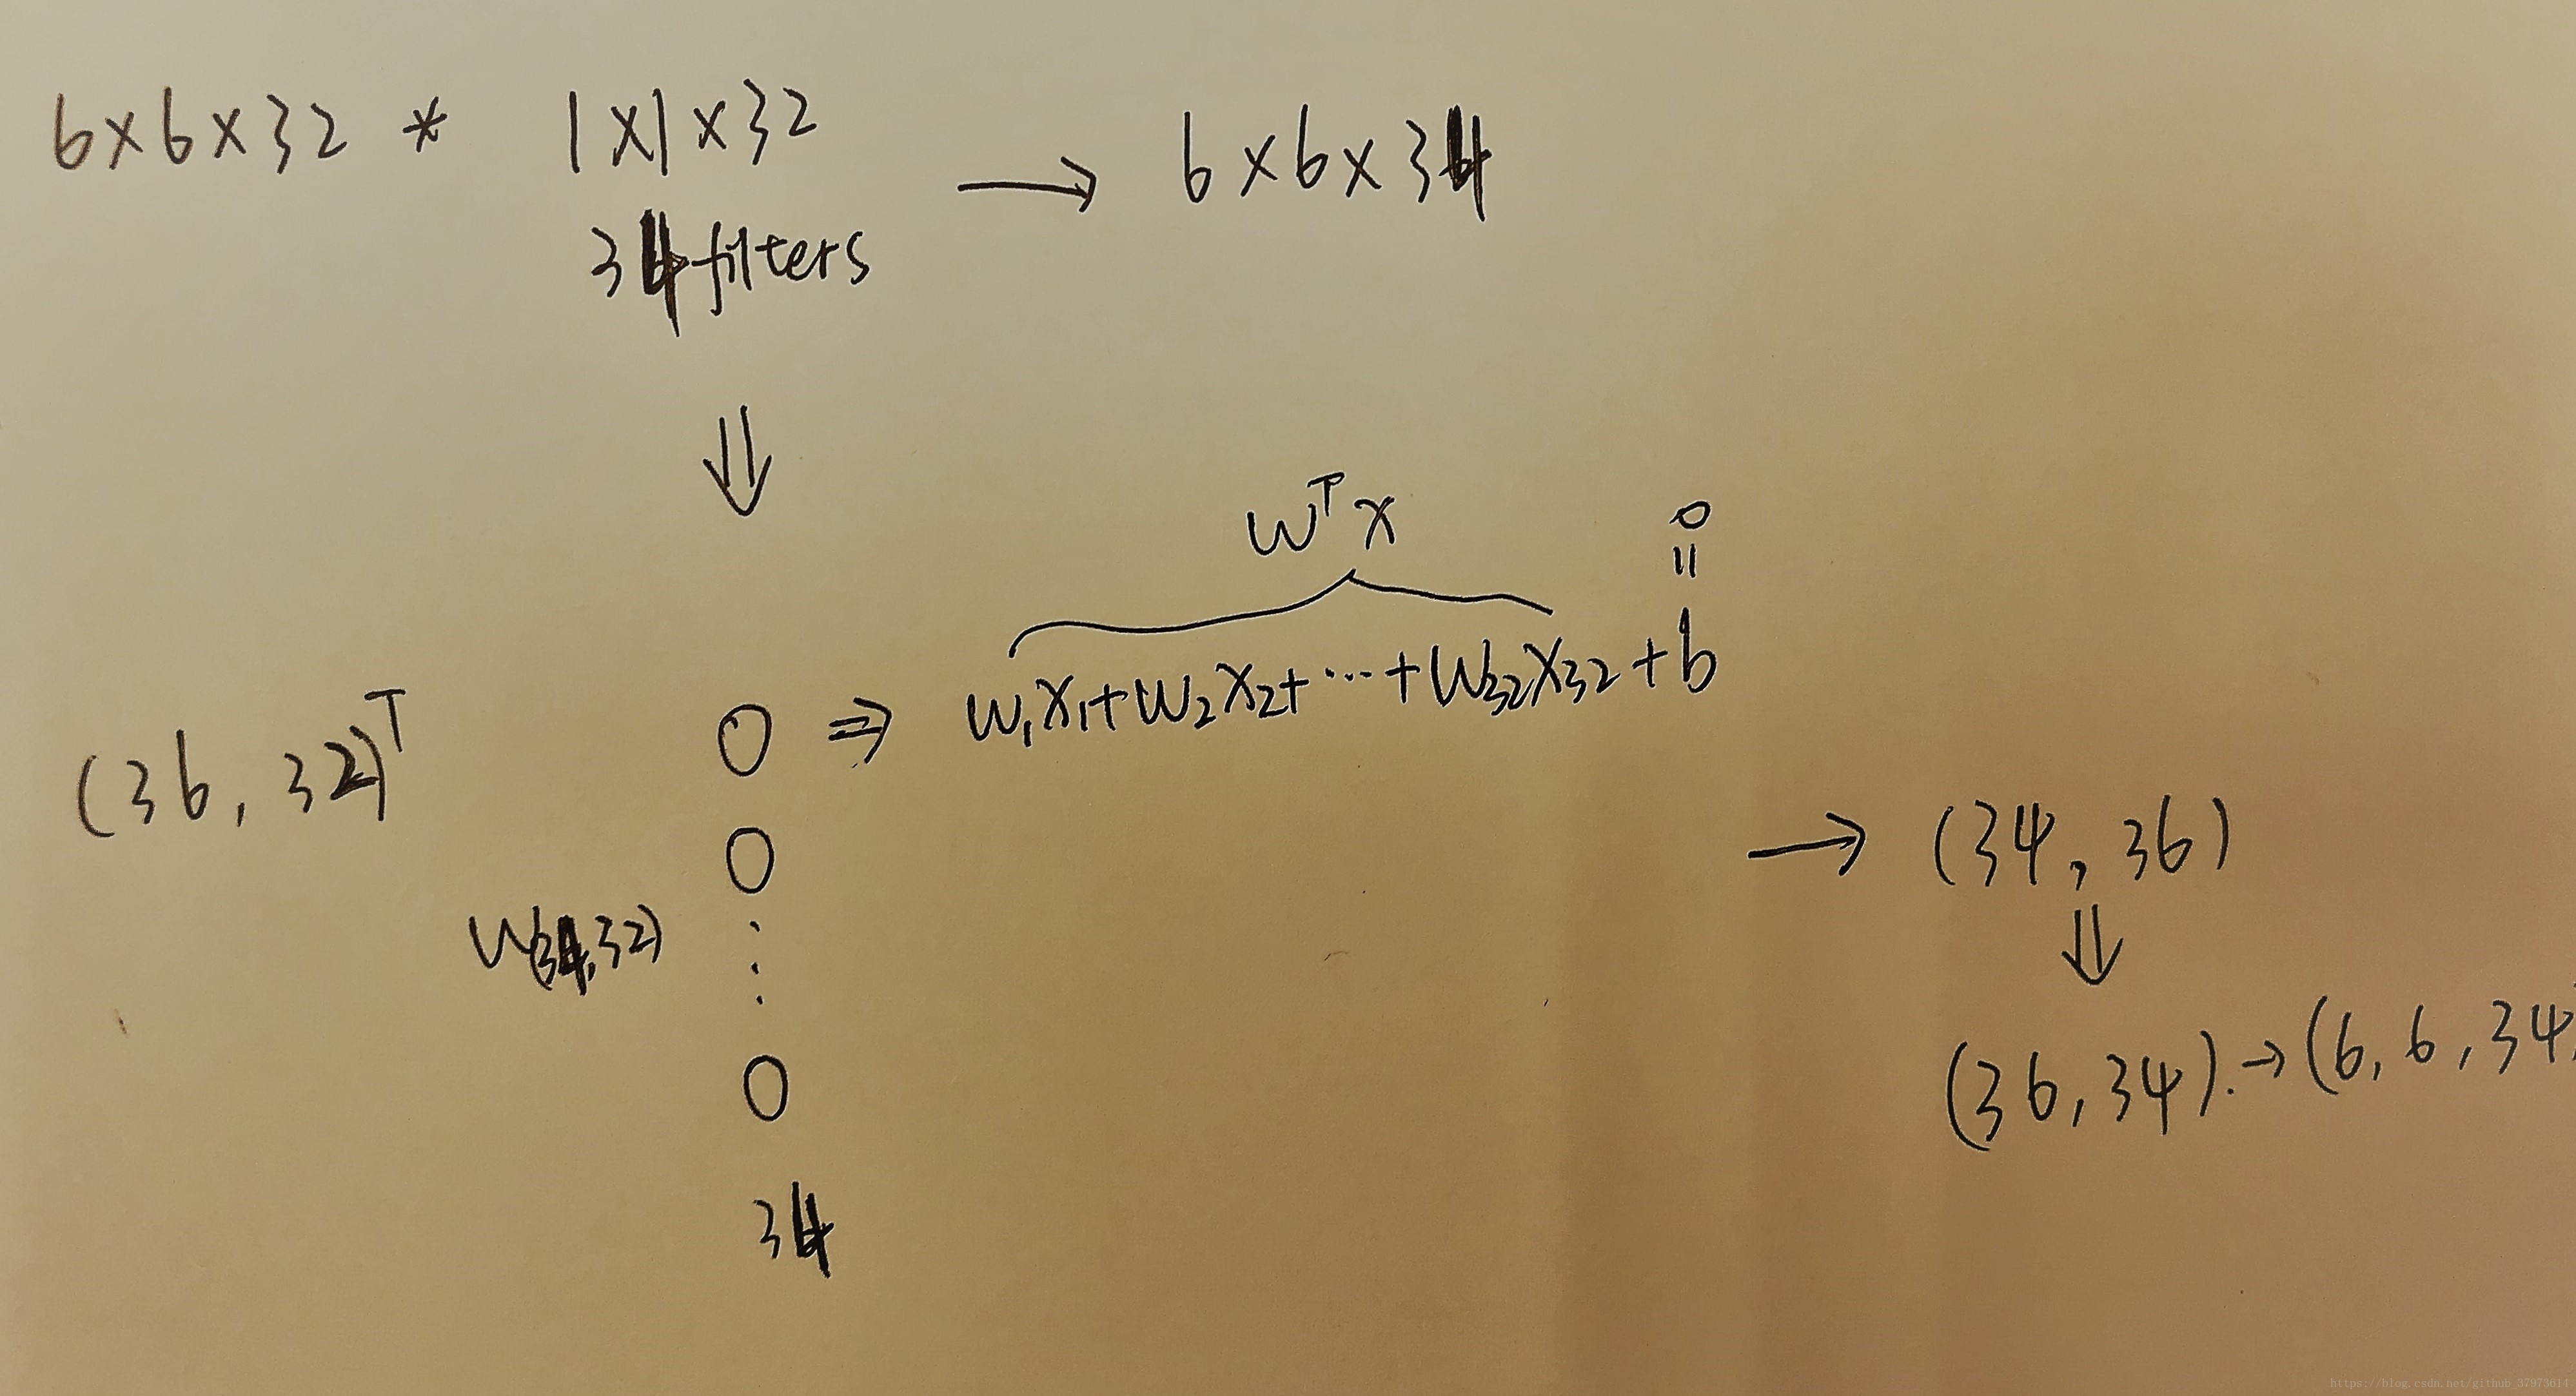 6×6×32 * 1×1×32 → 6×6×34
34 filters
⇓
wᵀx
0
=
w₁x₁+w₂x₂+⋯+w₃₂x₃₂+b
(36, 32)ᵀ
0 ⇒
0
W(34,32)
⋮
0
34
→ (34, 36)
⇓
(36, 34). → (6, 6, 34)
https://blog.csdn.net/github_37973614